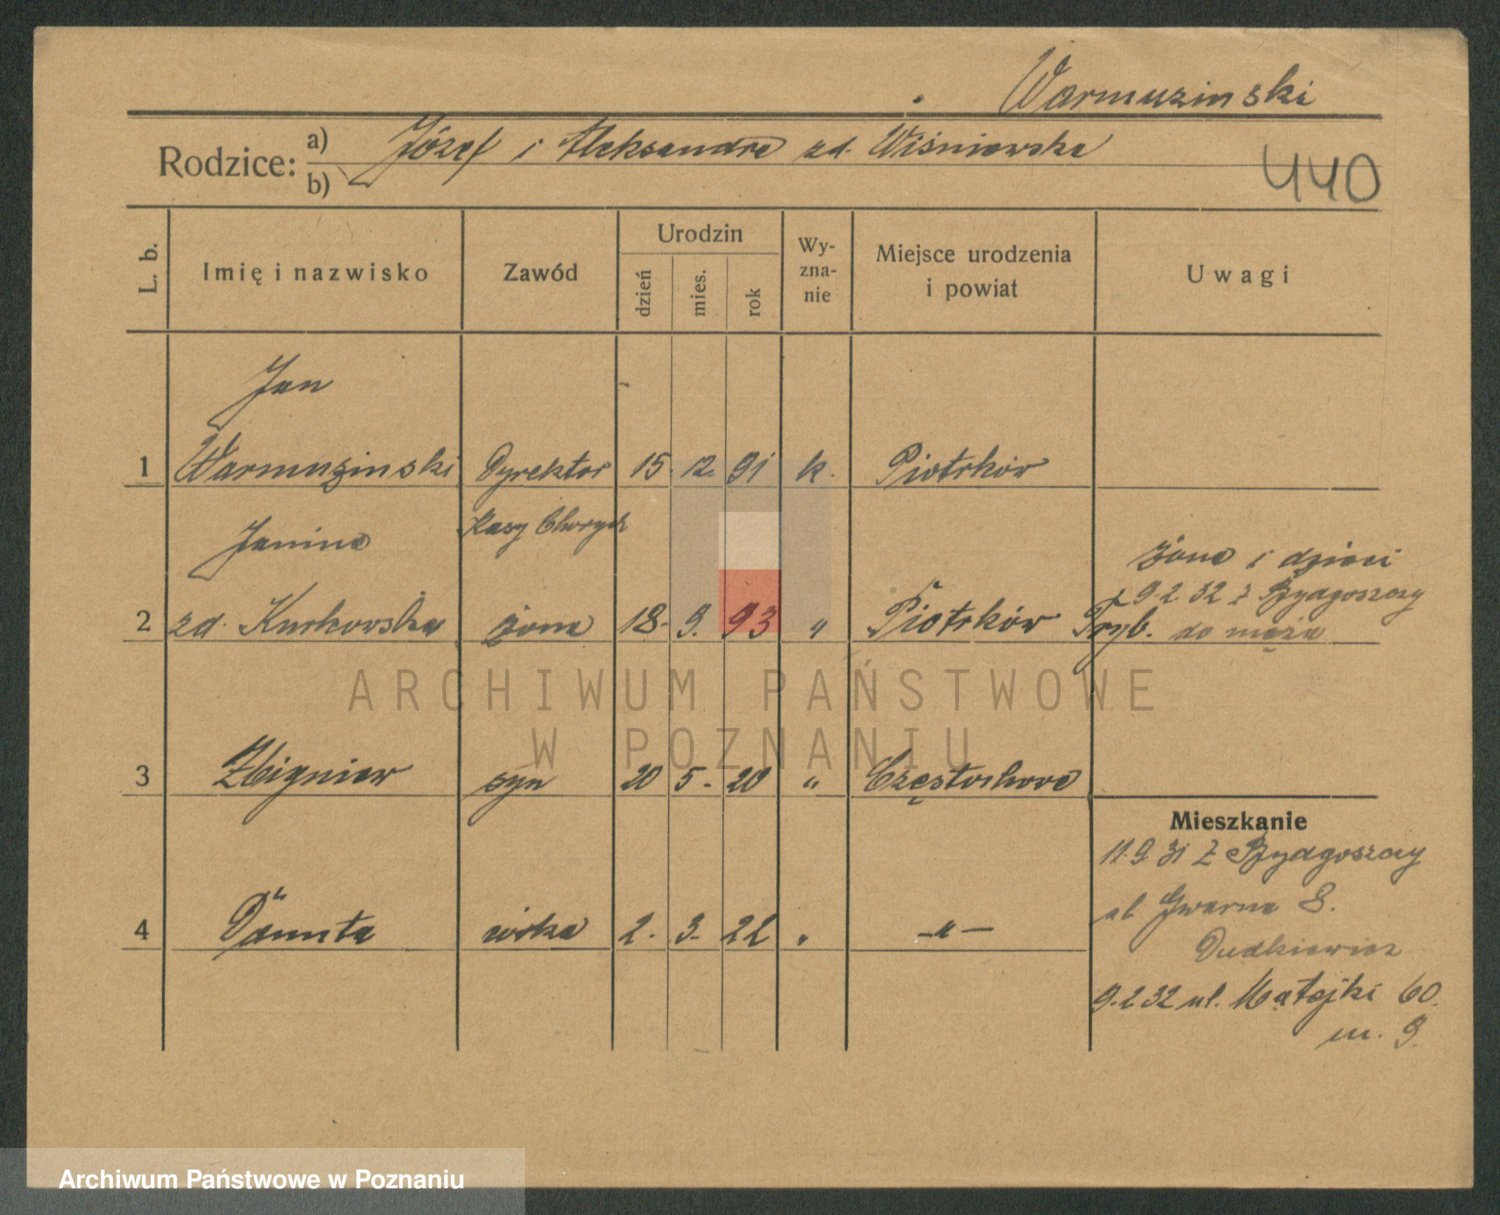 Warmuzinski
Rodzice: a) Józef i Aleksandra zd. Wiśniewska
b)
440
L. b. Imię i nazwisko Zawód Urodzin dzień mies. rok Wyznanie Miejsce urodzenia i powiat Uwagi
Jan
1 Warmuzinski Dyrektor 15. 12. 91 k. Piotrków
Kasy Chorych
Janina
żona i dzieci
9.2 32 z Bydgoszczy
2 zd. Kurkowska żona 18. 9. 93 " Piotrków Tryb. do męża
ARCHIWUM PAŃSTWOWE
W POZNANIU
3 Zbigniew syn 20 5. 20 " Częstochowa
Mieszkanie
11.9 31 z Bydgoszczy
ul Gwarna 8.
4 Danuta córka 2. 3. 22 " -"-
Dudkiewicz
9.2 32 ul. Matejki 60.
m. 9.
Archiwum Państwowe w Poznaniu